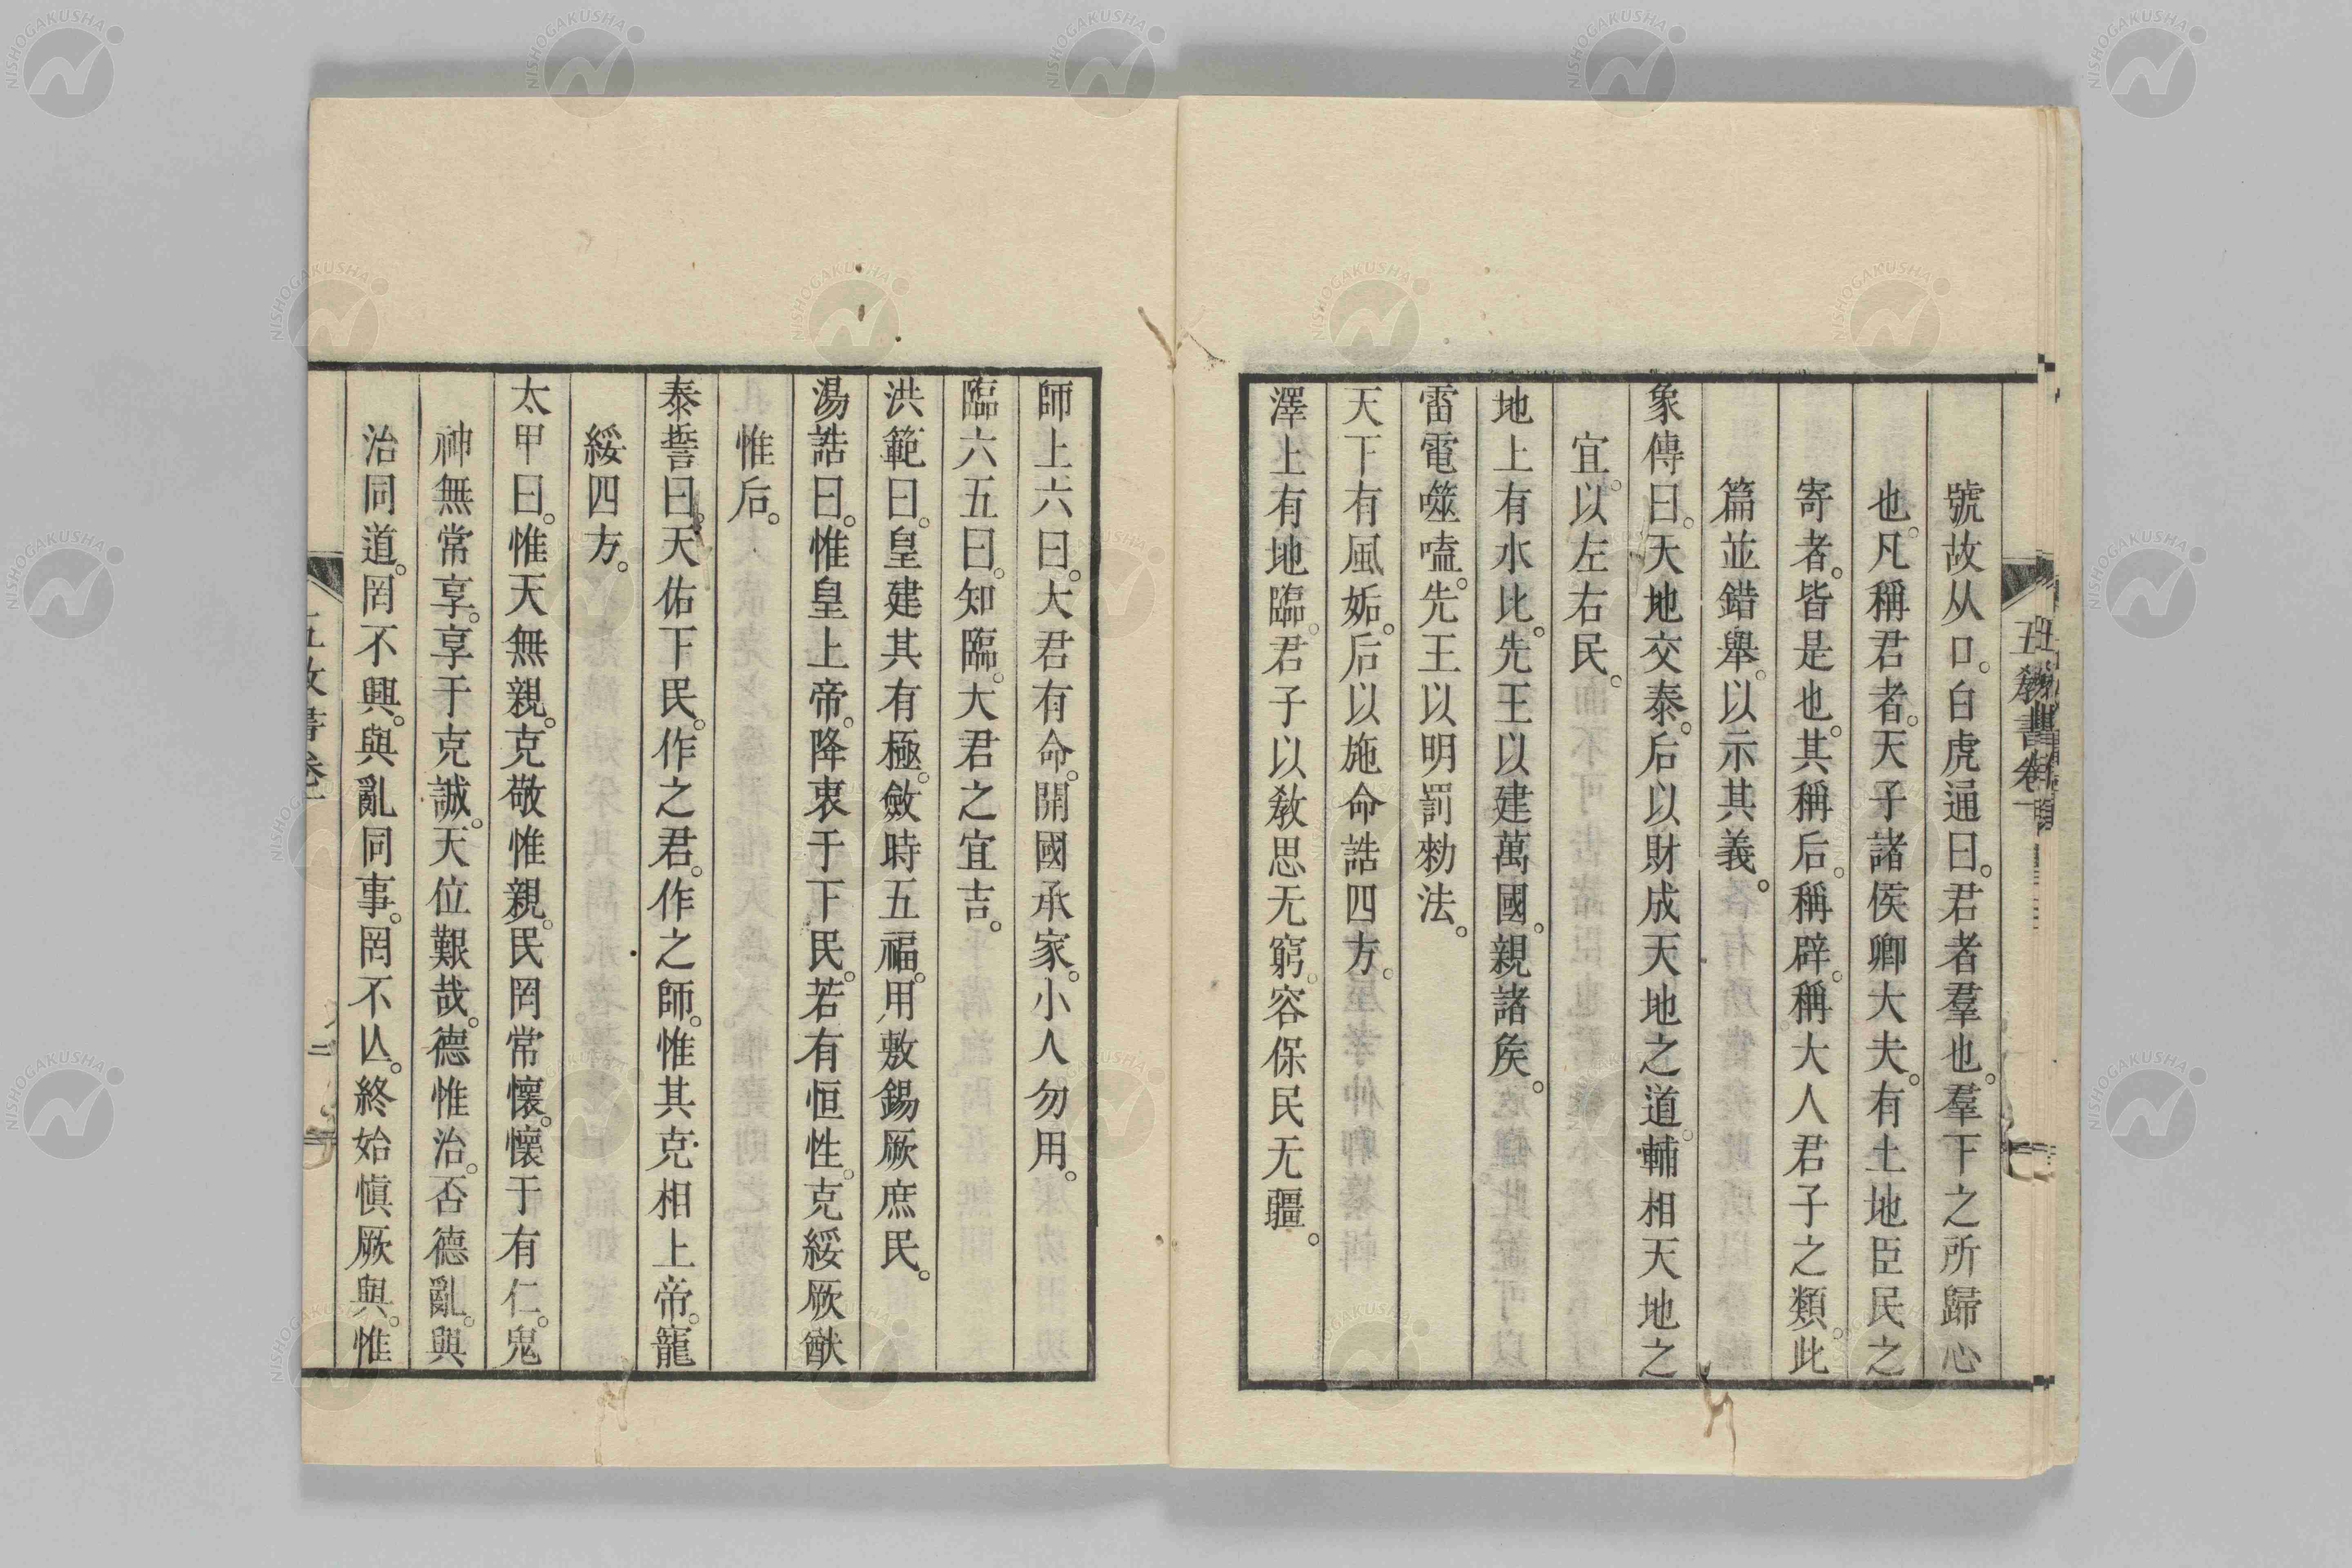 號故从口。白虎通曰。君者羣也。羣下之所歸心
也。凡稱君者。天子諸侯卿大夫。有土地臣民之
寄者。皆是也。其稱后。稱辟。稱大人君子之類。此
篇並錯舉。以示其義。
象傳曰。天地交泰。后以財成天地之道。輔相天地之
宜。以左右民。
地上有水比。先王以建萬國。親諸矦。
雷電噬嗑。先王以明罰勑法。
天下有風姤。后以施命誥四方。
澤上有地臨。君子以敎思无窮。容保民无疆。
師上六曰。大君有命。開國承家。小人勿用。
臨六五曰。知臨。大君之宜吉。
洪範曰。皇建其有極。斂時五福。用敷錫厥庶民。
湯誥曰。惟皇上帝。降衷于下民。若有恒性。克綏厥猷
惟后。
泰誓曰。天佑下民。作之君。作之師。惟其克相上帝。寵
綏四方。
太甲曰。惟天無親。克敬惟親。民罔常懷。懷于有仁。鬼
神無常享。享于克誠。天位艱哉。德惟治。否德亂。與
治同道。罔不興。與亂同事。罔不亾。終始愼厥與。惟
二
NISHOGAKUSHA